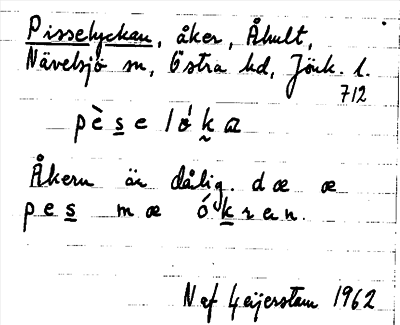 Pisselyckan, åker, Åhult,
Nävelsjö sn, Östra hd, Jönk. l.
712
pèse lóka
Åkern är dålig. dæ æ
pes mæ ókran.
N af Geijerstam 1962